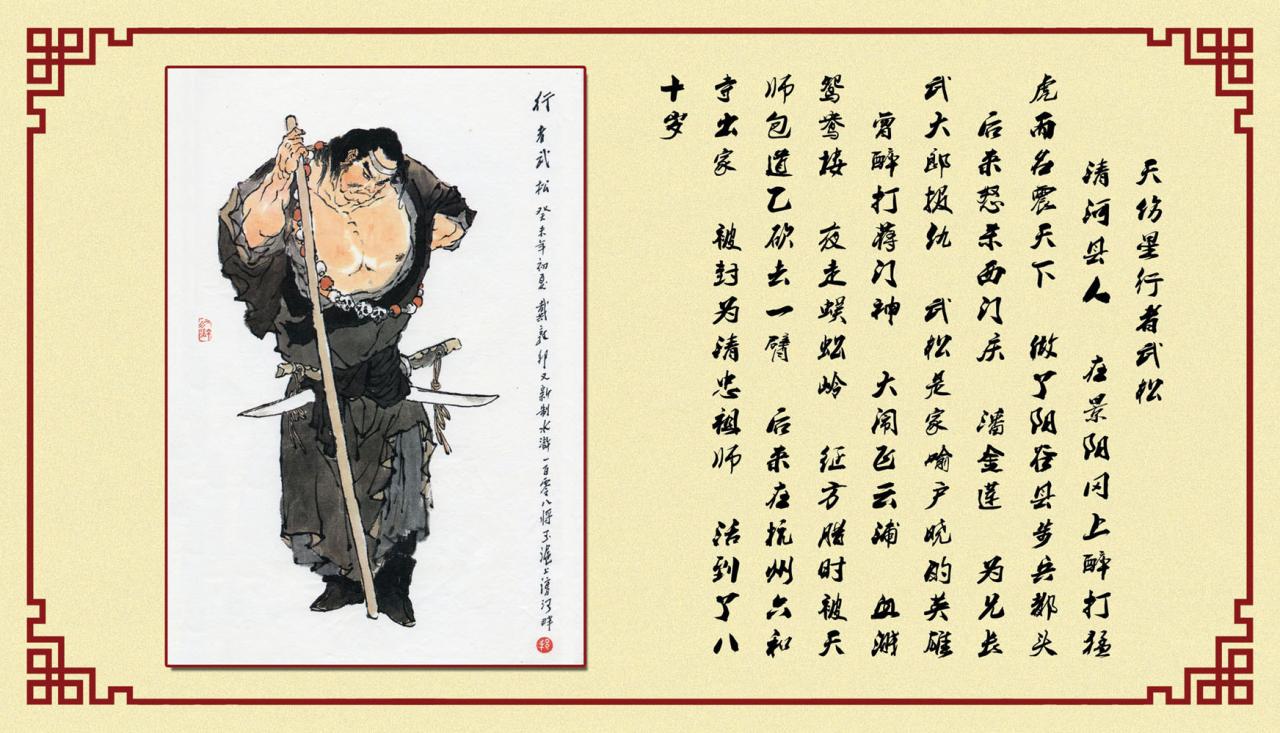 天伤星行者武松
清河县人 在景阳冈上醉打猛
虎而名震天下 做了阳谷县步兵都头
后来怒杀西门庆 潘金莲 为兄长
武大郎报仇 武松是家喻户晓的英雄
曾醉打蒋门神 大闹飞云浦 血溅
鸳鸯楼 夜走蜈蚣岭 征方腊时被天
师包道乙砍去一臂 后来在杭州六和
寺出家 被封为清忠祖师 活到了八
十岁
行者武松 癸未年初夏 戴敦邦又新制水浒一百零八将于沪上